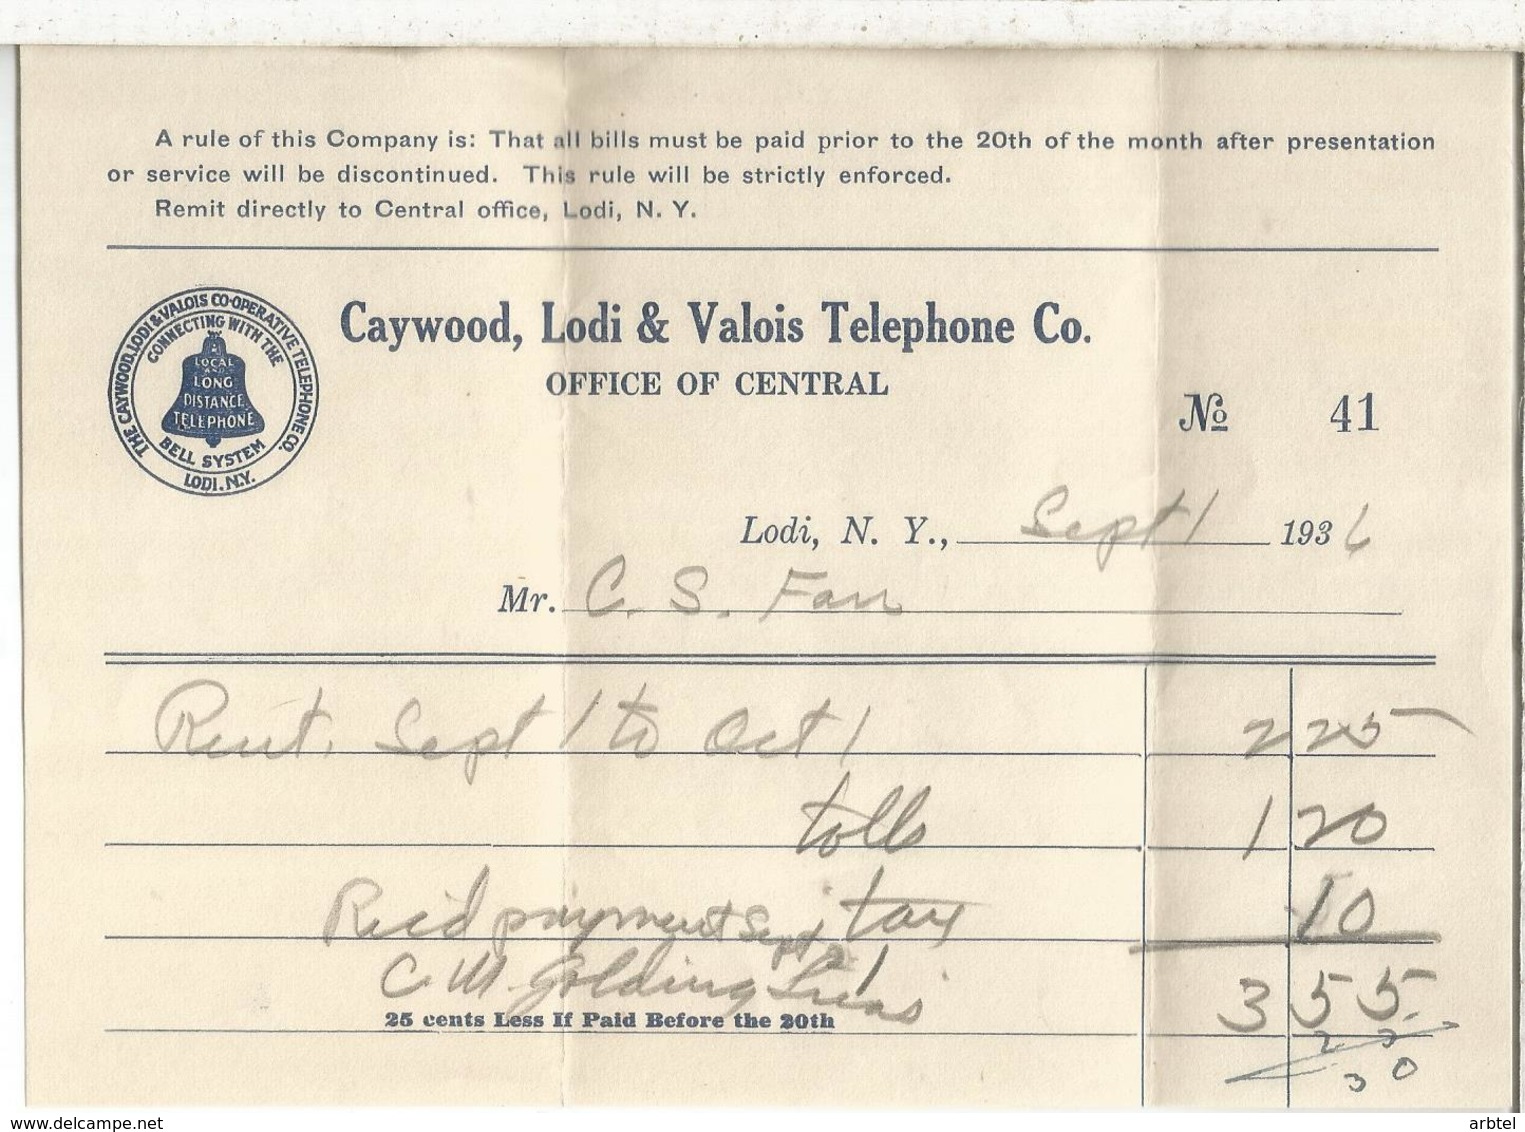 A rule of this Company is: That all bills must be paid prior to the 20th of the month after presentation
or service will be discontinued. This rule will be strictly enforced.
Remit directly to Central office, Lodi, N. Y.
THE CAYWOOD, LODI & VALOIS CO-OPERATIVE TELEPHONE CO.
CONNECTING WITH THE
LOCAL
AND
LONG
DISTANCE
TELEPHONE
BELL SYSTEM
LODI. N.Y.
Caywood, Lodi & Valois Telephone Co.
OFFICE OF CENTRAL
No 41
Lodi, N. Y., Sept 1 1936
Mr. C. S. Farr
Rent, Sept 1 to Oct 1 2 25
tolls 1 20
Rec'd payment Sept tax 10
C M Golding Treas 3 55
25 cents Less If Paid Before the 20th
2 5
3 0
www.delcampe.net
arbtel